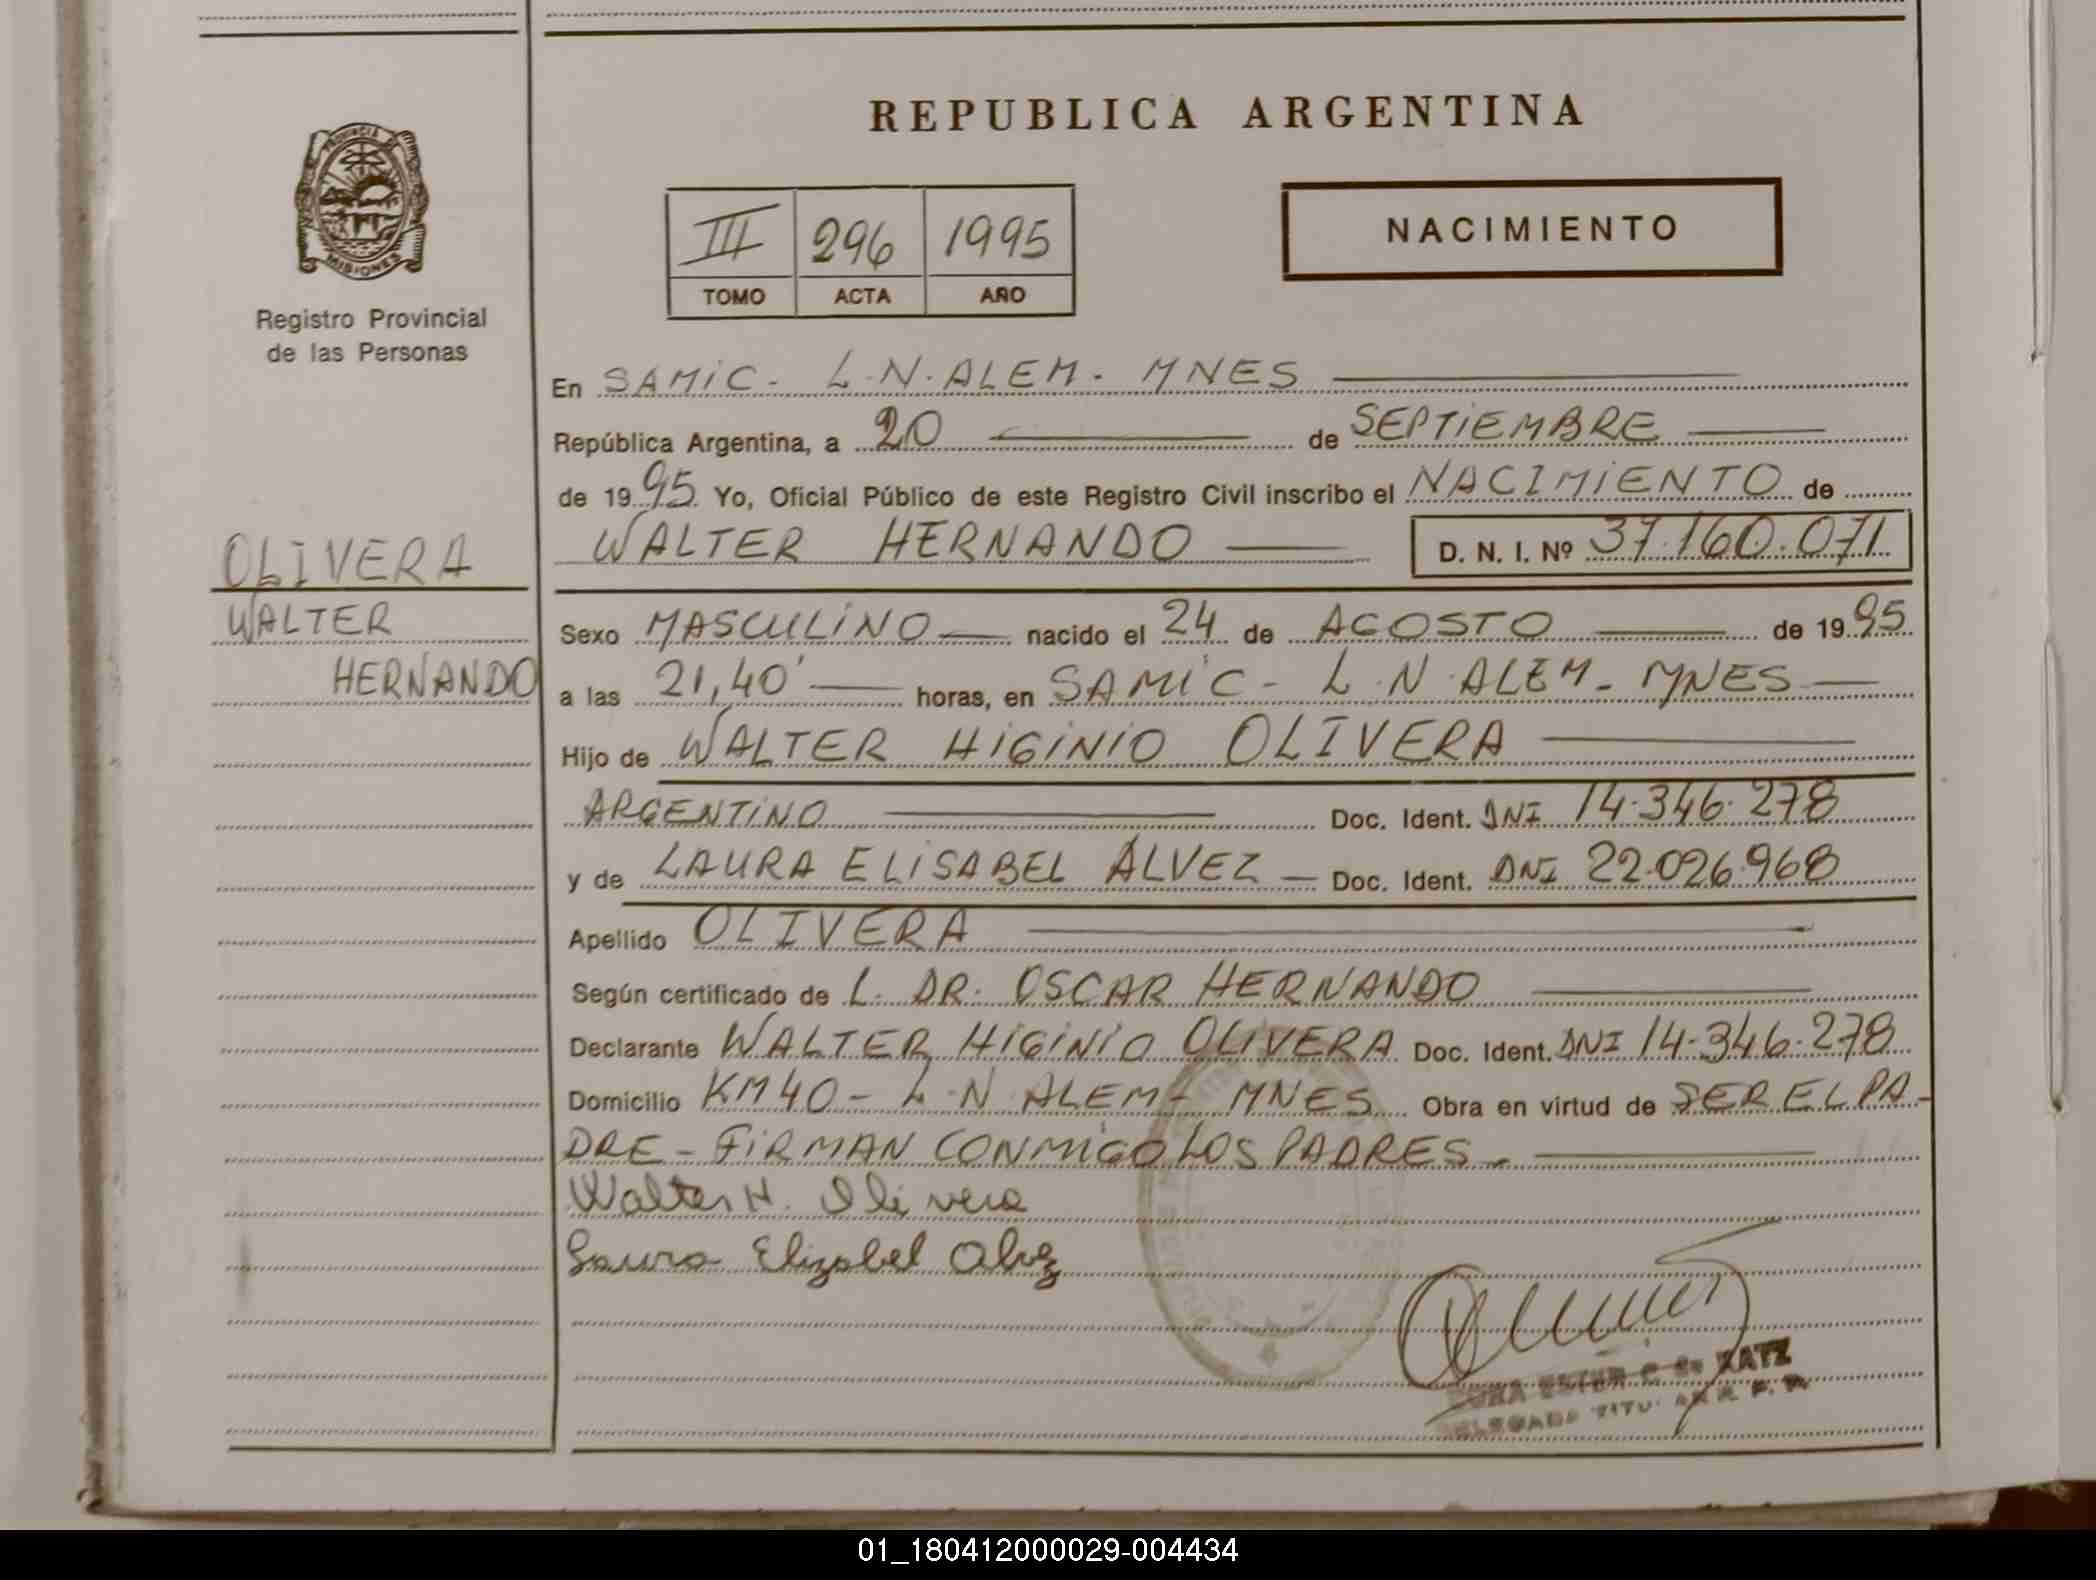 REPUBLICA ARGENTINA
PROVINCIA DE
MISIONES
Registro Provincial
de las Personas
III 296 1995
TOMO ACTA AÑO
NACIMIENTO
En SAMIC - L.N. ALEM - MNES
República Argentina, a 20 de SEPTIEMBRE
de 1995 Yo, Oficial Público de este Registro Civil inscribo el NACIMIENTO de
WALTER HERNANDO D. N. I. Nº 37.160.071
OLIVERA
WALTER
HERNANDO
Sexo MASCULINO nacido el 24 de AGOSTO de 1995
a las 21,40' horas, en SAMIC - L.N. ALEM - MNES
Hijo de WALTER HIGINIO OLIVERA
ARGENTINO Doc. Ident. DNI 14.346.278
y de LAURA ELISABEL ALVEZ Doc. Ident. DNI 22.026.968
Apellido OLIVERA
Según certificado de L. DR. OSCAR HERNANDO
Declarante WALTER HIGINIO OLIVERA Doc. Ident. DNI 14.346.278
Domicilio KM 40 - L.N. ALEM - MNES Obra en virtud de SER EL PA-
DRE - FIRMAN CONMIGO LOS PADRES -
Walter H. Olivera
Laura Elizabel Alvez
ESTER C. de KATZ
DELEGADA TITU
01_180412000029-004434